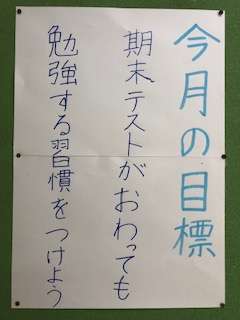 今月の目標
期末テストがおわっても
勉強する習慣をつけよう